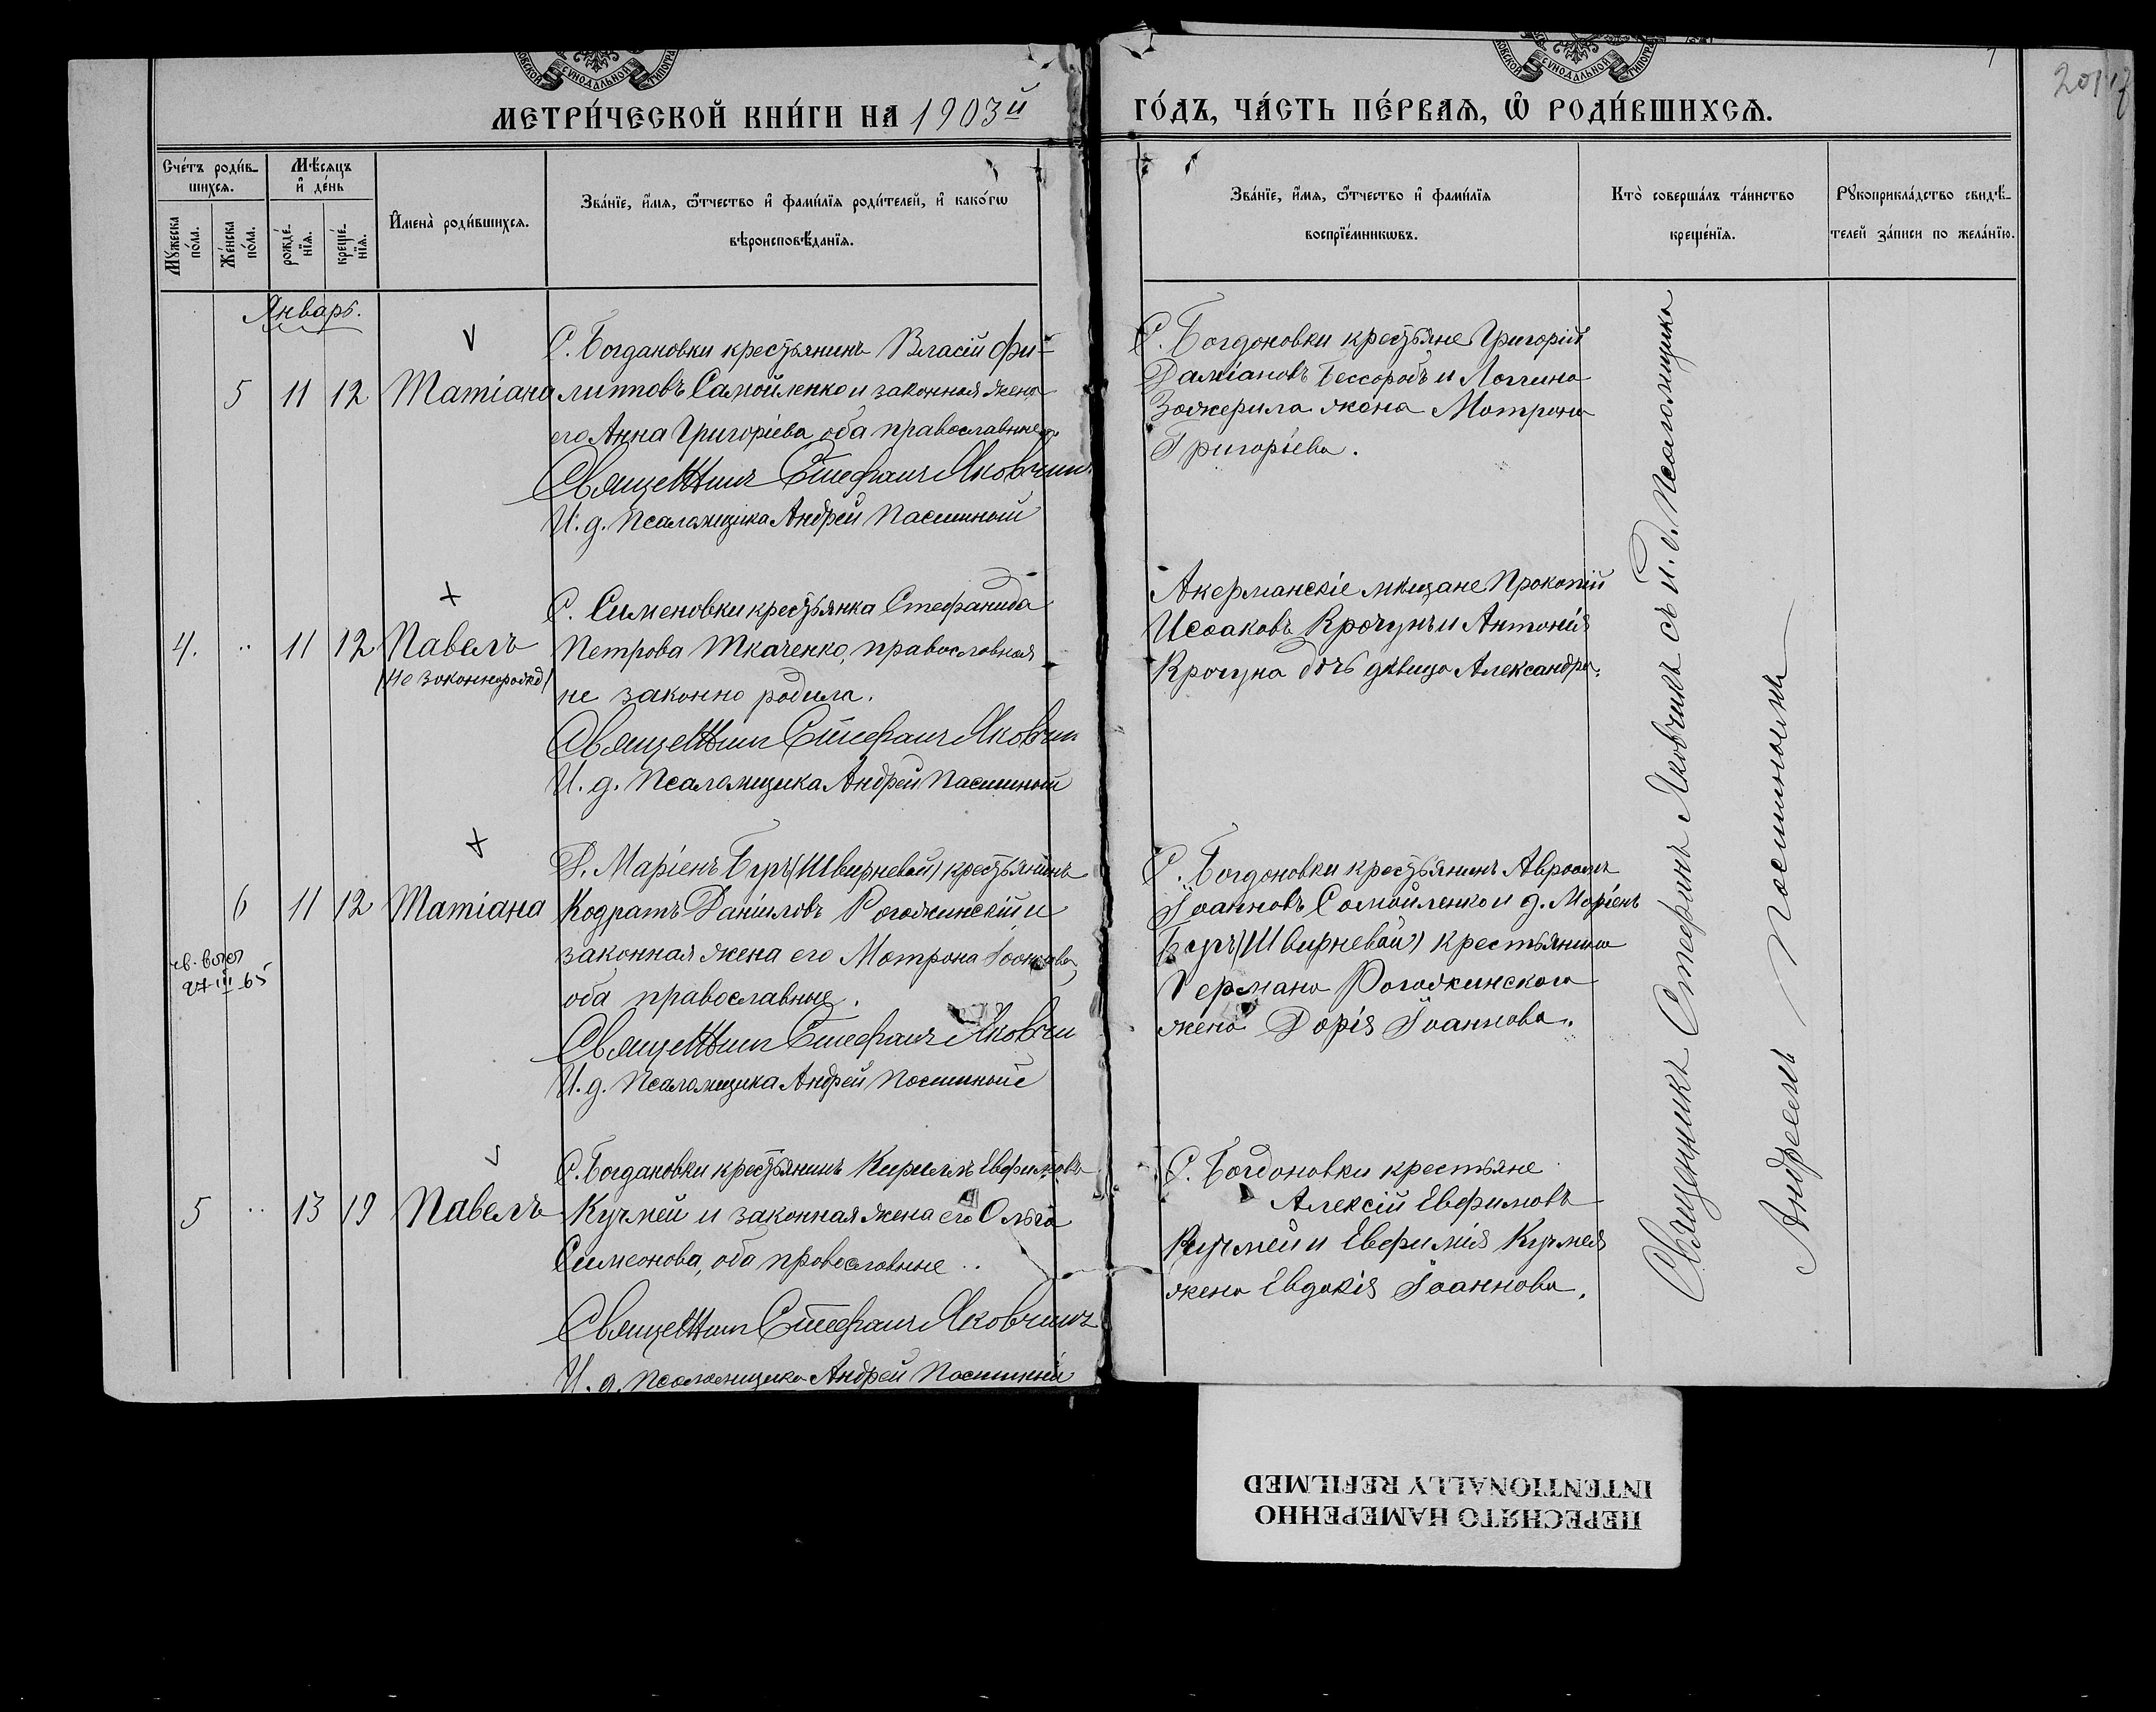 МЕТРИ́ЧЕСКОЙ КНИ́ГИ НА 1903й
ГО́ДЪ, ЧА́СТЬ ПЕ́РВАѦ, Ѡ҆ РОДИ́ВШИХСѦ.
Сче́тъ роди́в-
шихсѧ.
Мѣ́сѧцъ
и҆ де́нь
Мꙋ́жеска
по́ла.
Же́нска
по́ла.
рожде́-
нїѧ.
креще́-
нїѧ.
И҆мена̀ роди́вшихсѧ.
Зва́нїе, и҆́мѧ, ѻ҆́тчество и҆ фами́лїѧ роди́телей, и҆ како́гѡ
вѣроисповѣ́данїѧ.
Зва́нїе, и҆́мѧ, ѻ҆́тчество и҆ фами́лїѧ
воспрїе́мникѡвъ.
Кто̀ соверша́лъ та́инство
креще́нїѧ.
Рꙋкоприкла́дство свидѣ́-
телей за́писи по жела́нїю.
Январь.
5 11 12 Татіана
С. Богдановки крестьянинъ Власій Фи-
липповъ Самойленко и законная жена
его Анна Григоріева, оба православные.
Священникъ Стефанъ Яковчикъ
И. д. Псаломщика Андрей
С. Богдановки крестьяне Григорій
Даміановъ Бессородъ и Логгина
жена Матрона
Григоріева.
4. .. 11 12 Павелъ
(не законнорожд)
С. Сименовки крестьянка Стефанида
Петрова Ткаченко, православная
не законно родила.
Священникъ Стефанъ Яковчи
И. д. Псаломщика Андрей
Акерманскіе мѣщане Прокопій
Исааковъ Крочунъ и Антонія
Крочуна дочь дѣвица Александра.
6 11 12 Татіана
27 III 65
Д. Маріенъ Буръ (Швирневой) крестьянинъ
Кодратъ Даніиловъ Рогожинскій и
законная жена его Матрона Іоаннова,
оба православные.
Священникъ Стефанъ Яковчи
И. д. Псаломщика Андрей
С. Богдановки крестьянинъ Авраамъ
Іоанновъ Самойленко и д. Маріенъ
Буръ (Швирневой) крестьянина
Германа Рогожинского
жена Дарія Іоаннова.
5 .. 13 19 Павелъ
С. Богдановки крестьянинъ Кириллъ Евфимовъ
Кучмей и законная жена его Ольга
Симеонова, оба православные..
Священникъ Стефанъ Яковчикъ
И. д. Псаломщика Андрей
С. Богдановки крестьяне
Алексій Евфимовъ
Кучмей и Евфимія Кучмея
жена Евдокія Іоаннова.
Священникъ Стефанъ Яковчикъ съ и. д. Псаломщика
Андреемъ
ПЕРЕСНЯТО НАМЕРЕННО
INTENTIONALLY REFILMED